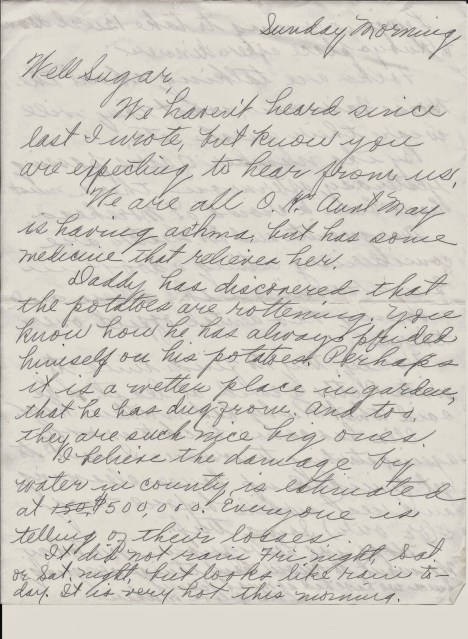 Sunday Morning
Well Sugar,
We haven't heard since
last I wrote, but know you
are expecting to hear from us.
We are all O.K. Aunt May
is having asthma, but has some
medicine that relieves her.
Daddy has discovered that
the potatoes are rottening. You
know how he has always prided
himself on his potatoes. Perhaps
it is a wetter place in garden,
that he has dug from. And too,
they are such nice big ones.
I believe the damage by
water in county is estimated
at 150, $500,000. Everyone is
telling of their losses.
It did not rain Fri night, Sat
or Sat. night, but looks like rain to-
day. It is very hot this morning.